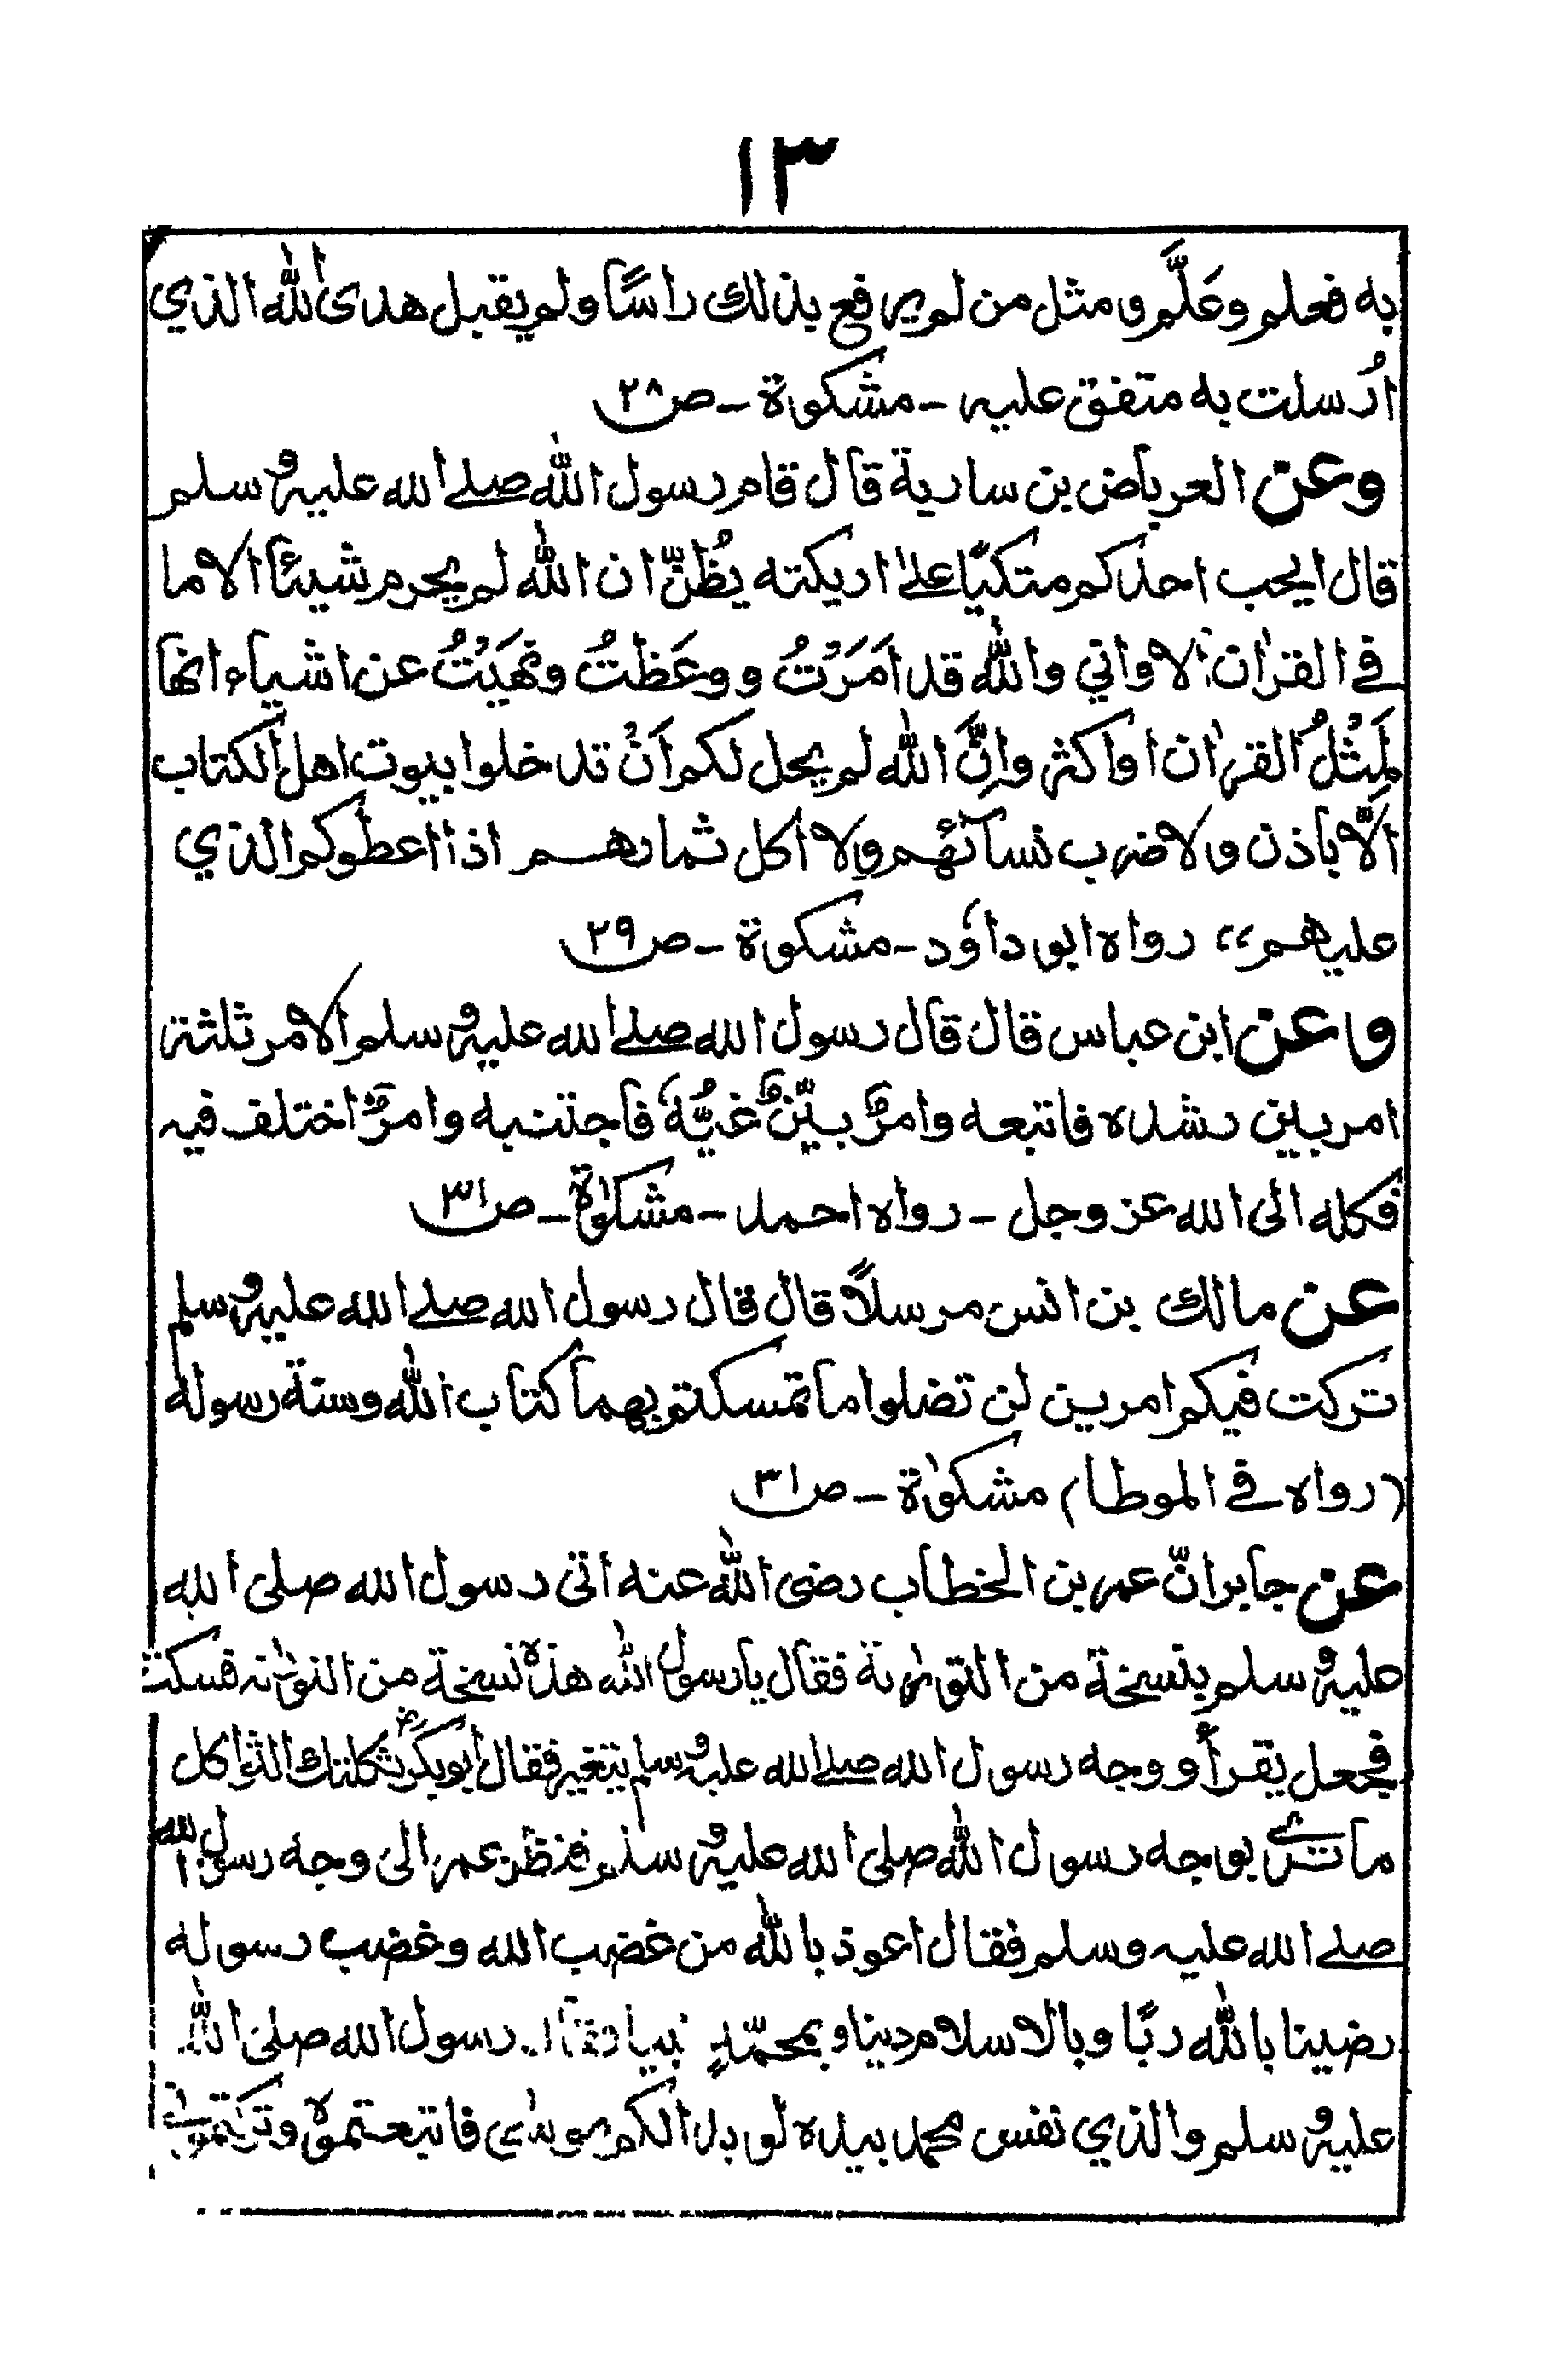 ١٣
به فعلم وعَلَّم ومثل من لم يرفع بذلك راسًا ولم يقبل هدى الله الذي
اُرسلت به متفق عليه - مشكوة - ص٢٨
وعن العرباض بن سارية قال قام رسول الله صلے الله عليه وسلم
قال ايحب احدكم متكيًا علےٰ اريكته يُظُنُّ ان الله لم يحرم شيئًا الا ما
فے القراٰن الا واني والله قد اَمَرْتُ ووعَظتُ ونهَيْتُ عن اشياء انها
لَمِثْلُ القراٰن او اكثر وانَّ الله لم يحل لكم اَنْ تدخلوا بيوت اهل الكتاب
الّا باذن ولا ضرب نسآئهم ولا اكل ثمارهم اذا اعطوكم الذي
عليهم،، رواه ابو داؤد - مشكوة - ص٢٩
وعن ابن عباس قال قال رسول الله صلے الله عليه وسلم الامر ثلثة
امر بين رشده فاتبعه وامرٌ بيّنٌ غيُّهٗ فاجتنبه وامرٌ اختلف فيه
فكله الى الله عز وجل - رواه احمد - مشكوٰة - ص٣١
عن مالك بن انس مرسلاً قال قال رسول الله صلے الله عليه وسلم
تركت فيكم امرين لن تضلوا ما تمسكتم بهما كتاب الله وسنة رسوله
(رواه فے الموطا) مشكوٰة - ص٣١
عن جابر انّ عمر بن الخطاب رضى الله عنه اتى رسول الله صلى الله
عليه وسلم بنسخة من التورٰىة فقال يا رسول الله هذه نسخة من التورٰىة فسكت
فجعل يقرأ ووجه رسول الله صلے الله عليه وسلم يتغير فقال ابوبكرؓ ثكلتك الثواكل
ما ترىٰ بوجه رسول الله صلى الله عليه وسلم فنظر عمر الى وجه رسول الله
صلے الله عليه وسلم فقال اعوذ بالله من غضب الله وغضب رسوله
رضينا بالله ربًا وبالاسلام دينا وبمحمّدٍ نبيا فقال رسول الله صلى الله
عليه وسلم والذي نفس محمد بيده لو بدا لكم موسٰى فاتبعتموه وتركتموني